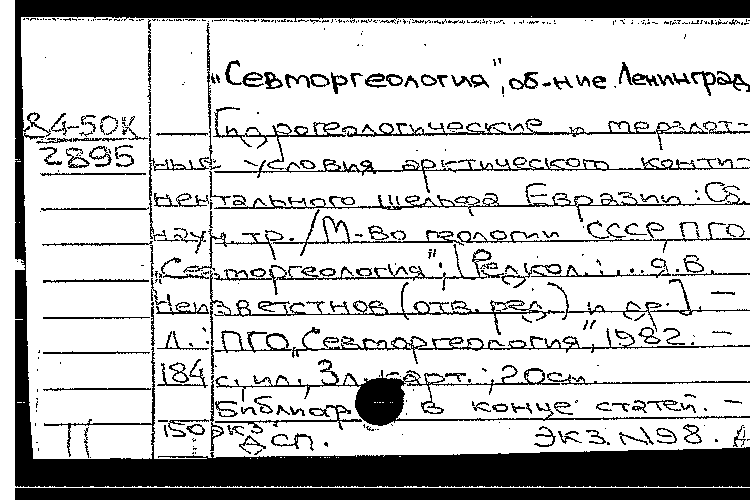 „Севморгеология", об-ние. Ленинград
84-50К
Гидрогеологические и мерзлот-
2895
ные условия арктического конти-
нентального шельфа Евразии: Сб.
науч. тр. / М-во геологии СССР, ПГО
„Севморгеология"; [Редкол.: ... Я.В.
Неизветстнов (отв. ред.) и др.]. —
Л.: ПГО „Севморгеология", 1982. —
184 с., ил., 3 л. карт.; 20 см.
Библиогр. в конце статей. —
150 экз.
ДСП. Экз. №98.